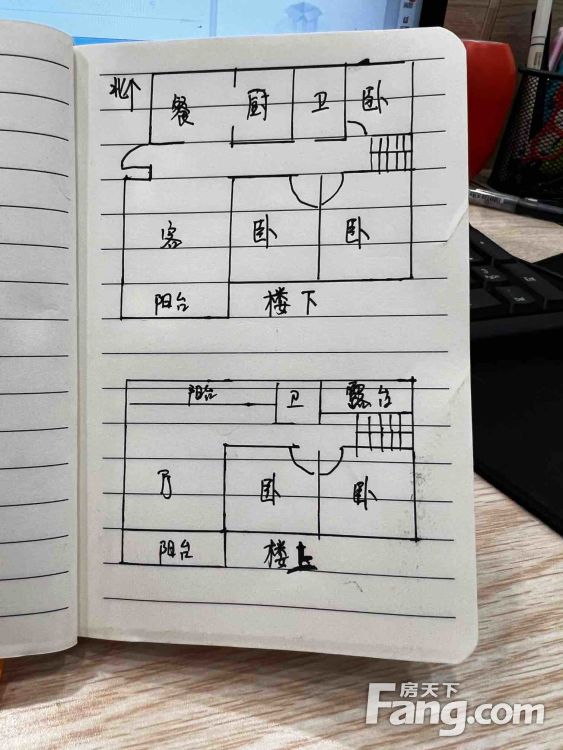 北
餐 厨 卫 卧
客 卧 卧
阳台 楼下
阳台 卫 露台
厅 卧 卧
阳台 楼上
房天下
Fang.com